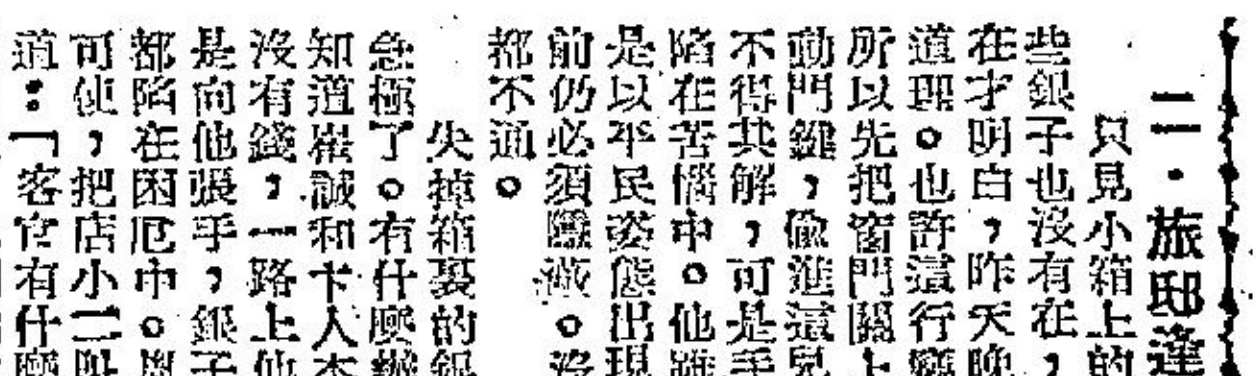 二．旅邸逢
只見小箱上的
些銀子也沒有在，
在才明白，昨天晚
道理。也許這行竊
所以先把窗門關上
動門鍵，偷進這兒
不得其解，可是手
陷在苦惱中。他雖
是以平民姿態出現
前仍必須隱藏。沒
都不通。
失掉箱裏的銀
急極了。有什麼辦
知道崔誠和卡人本
沒有錢，一路上他
是向他張手，銀子
都陷在困厄中。
可使，把店小二叫
道：「客官有什麼